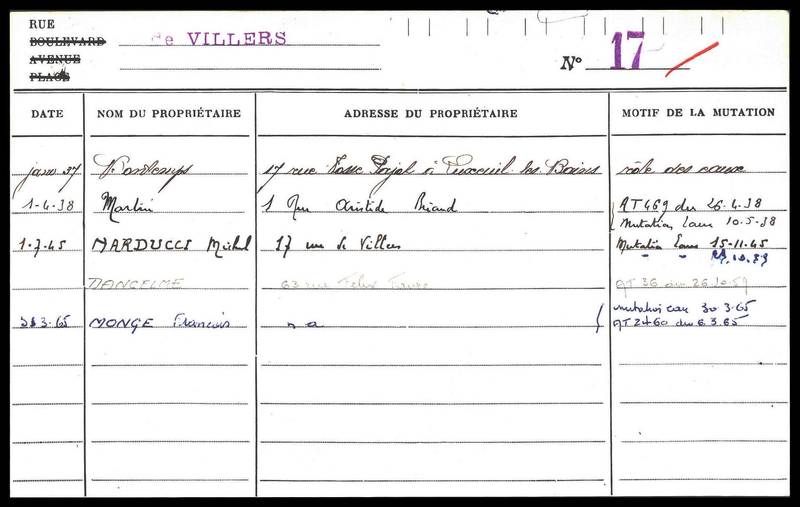 RUE
BOULEVARD
AVENUE
PLACE
de VILLERS
N° 17
DATE NOM DU PROPRIÉTAIRE ADRESSE DU PROPRIÉTAIRE MOTIF DE LA MUTATION
janv 37 17 rue à Luxeuil les Bains rôle des eaux
1-4-38 Martin 1 Rue Aristide Briand AT 469 du 26.4.38
Mutation Eaux 10.5-38
1.7.45 NARDUCCI Michel 17 rue de Villers Mutation Eaux 15-11.45
" "
DANCELME 63 rue Felix Faure AT 36 du 26.10.59
mutation eau 30.3.65
3.65 MONGE Francois AT 2460 du 6.3.65